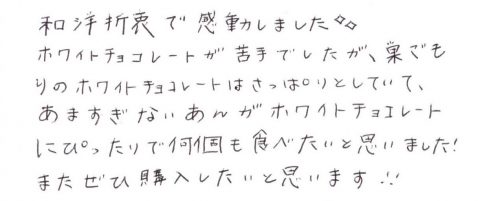 和洋折衷で感動しました◇◇
ホワイトチョコレートが苦手でしたが、巣ごも
りのホワイトチョコレートはさっぱりとしていて、
あますぎないあんがホワイトチョコレート
にぴったりで何個も食べたいと思いました!
またぜひ購入したいと思います!!